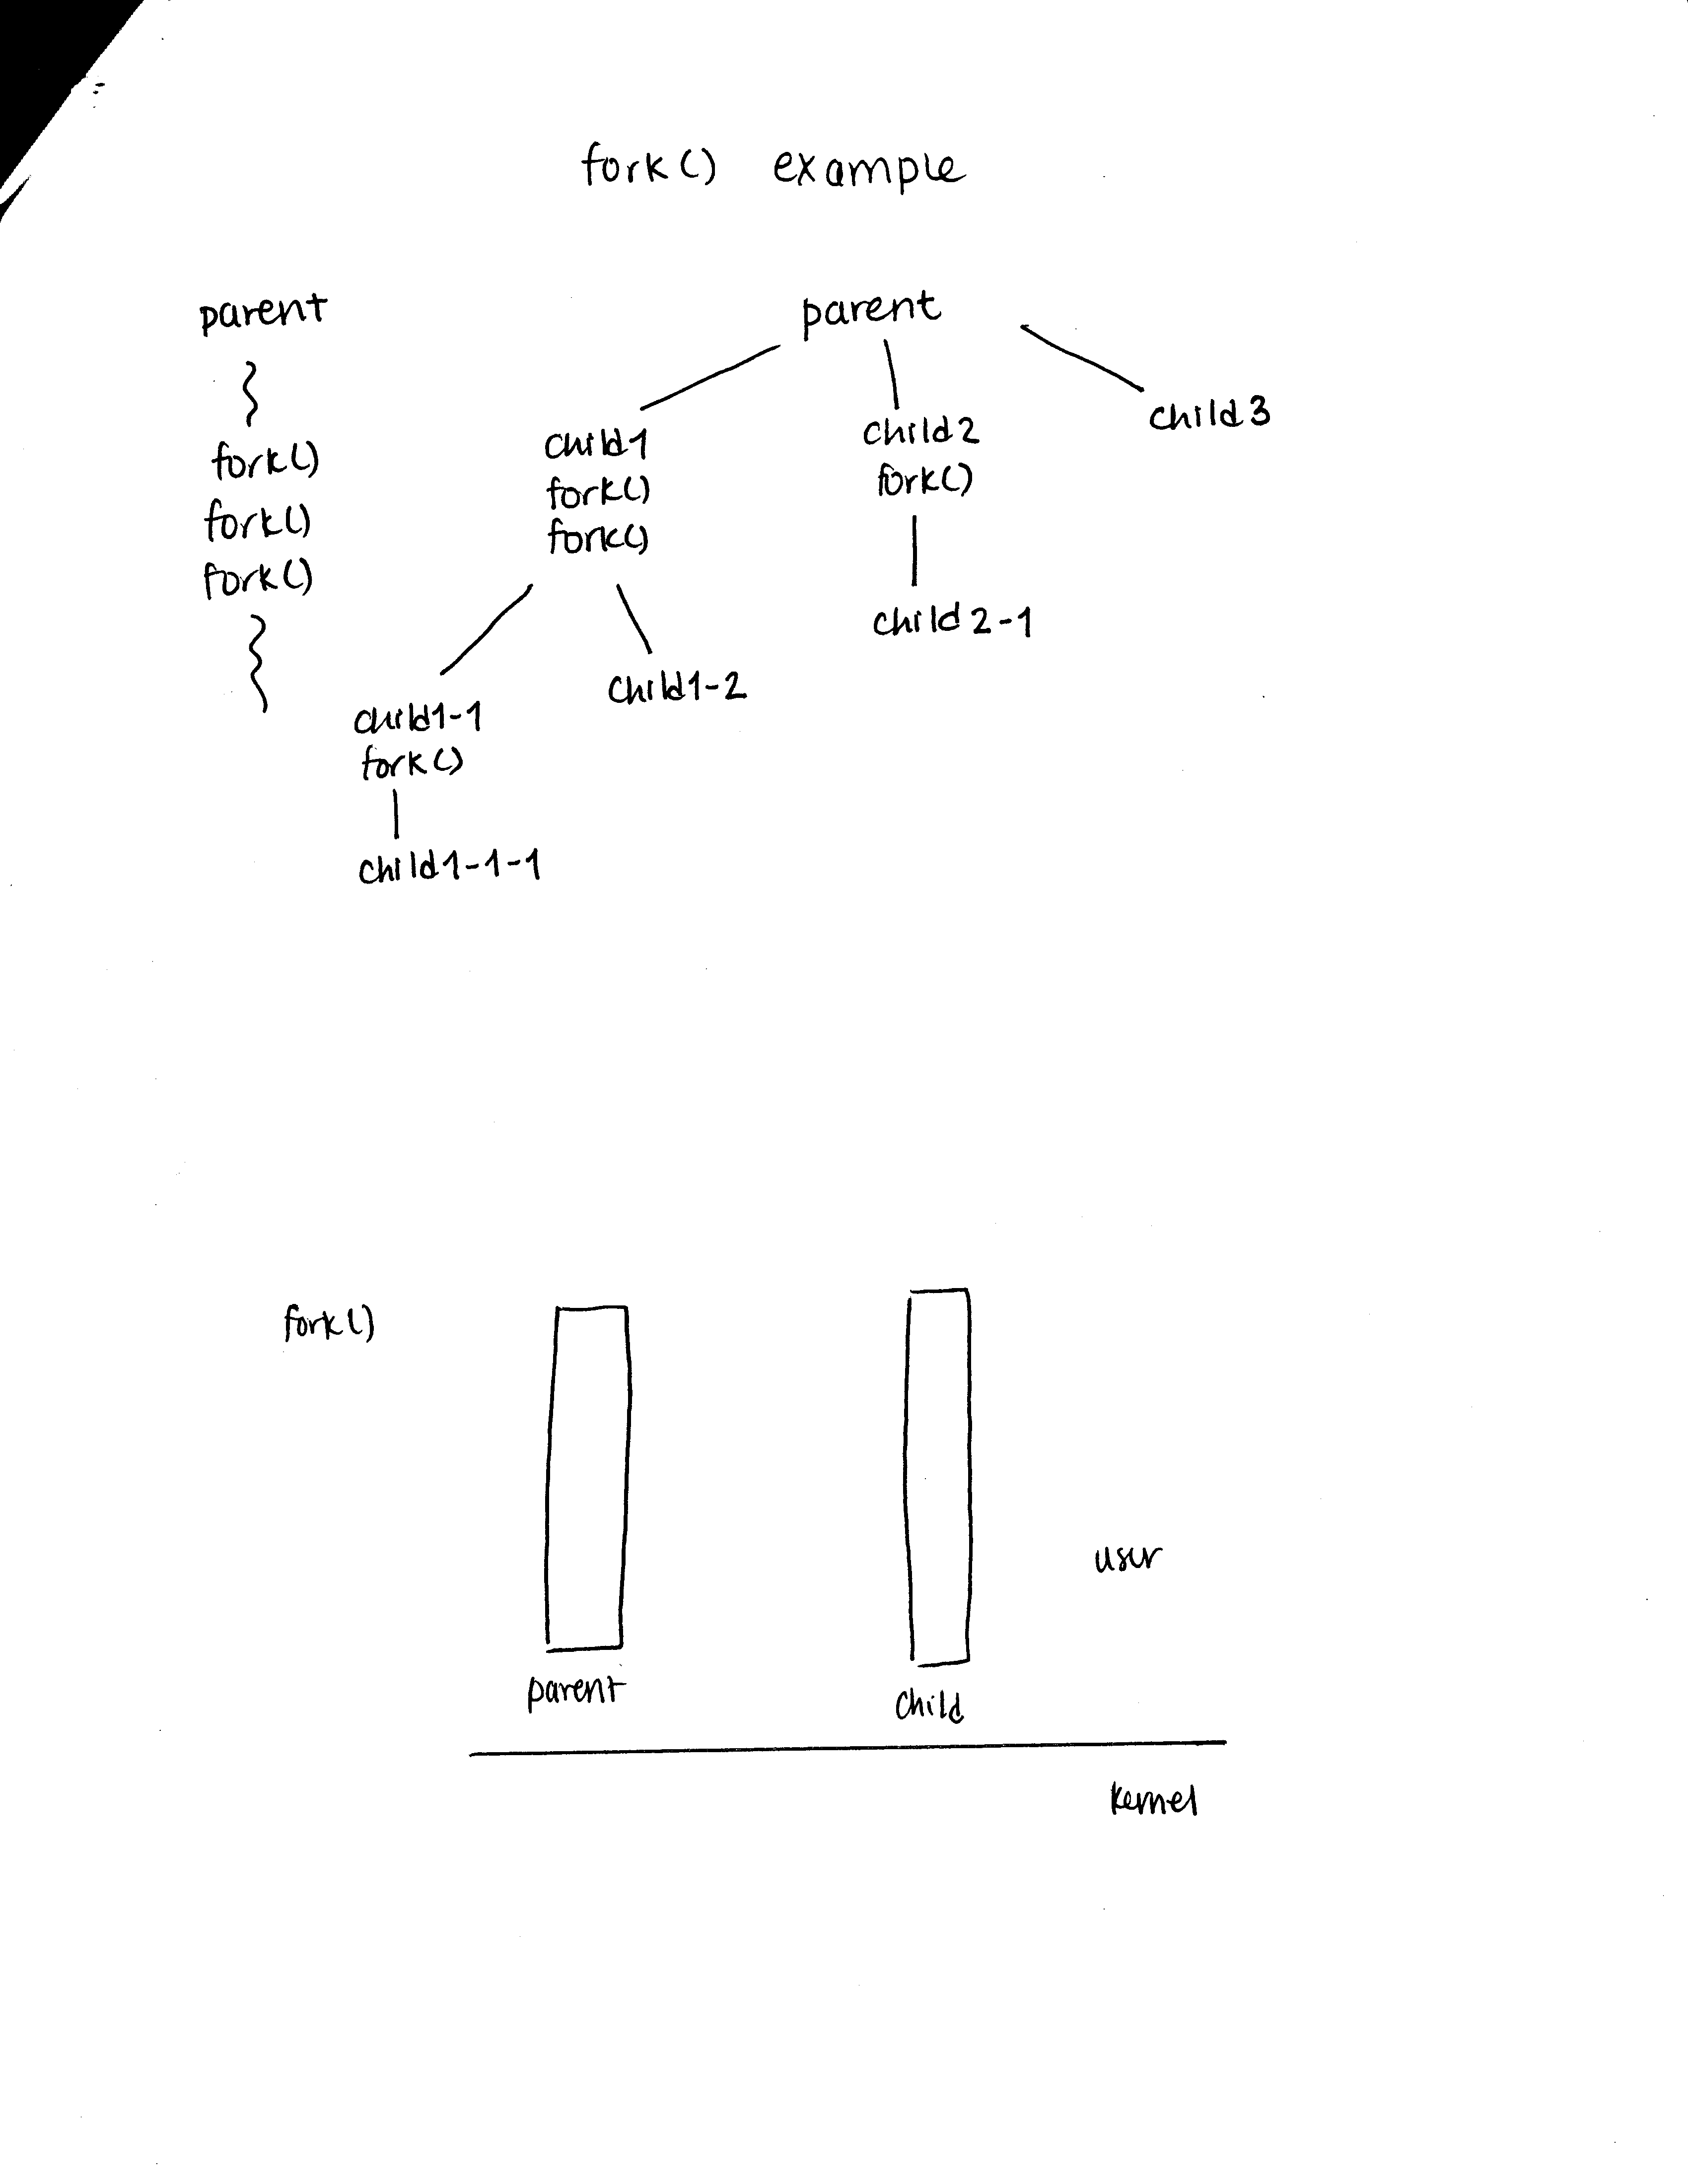 fork() example
parent
fork()
fork()
fork()
parent
child1
fork()
fork()
child2
fork()
child3
child2-1
child1-1
fork()
child1-2
child1-1-1
fork()
parent
child
user
kernel